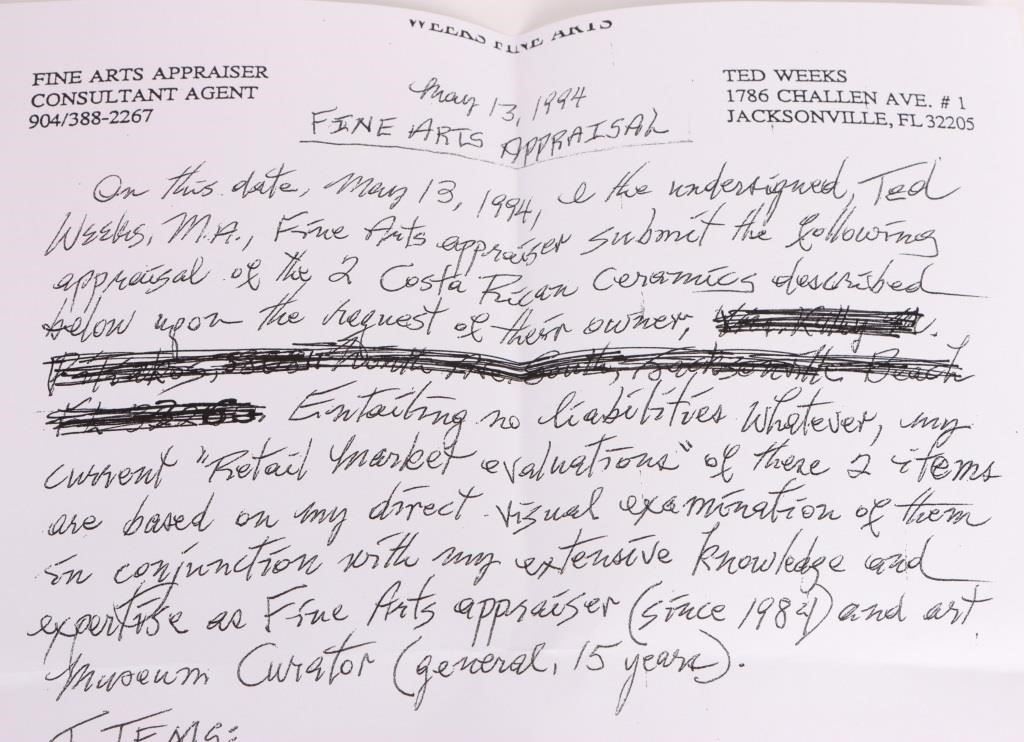 WEEKS FINE ARTS
FINE ARTS APPRAISER
CONSULTANT AGENT
904/388-2267
TED WEEKS
1786 CHALLEN AVE. # 1
JACKSONVILLE, FL 32205
May 13, 1994
FINE ARTS APPRAISAL
On this date, May 13, 1994, I the undersigned, Ted
Weeks, M.A., Fine Arts appraiser submit the following
appraisal of the 2 Costa Rican Ceramics described
below upon the request of their owner,
Entailing no liabilities whatever, my
current "Retail Market evaluations" of these 2 items
are based on my direct visual examination of them
in conjunction with my extensive knowledge and
expertise as Fine Arts appraiser (since 1984) and art
Museum Curator (general, 15 years).
ITEMS: